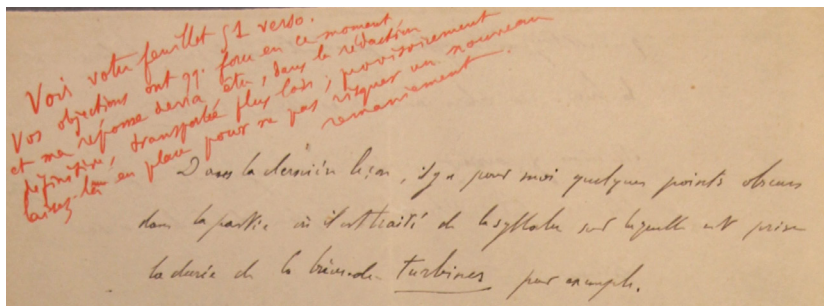 Voir votre feuillet 51 verso.
Vos objections ont qq. force en ce moment
et ma réponse devra être, dans la rédaction
définitive, transportée plus loin ; provisoirement
laissez-la en place pour ne pas risquer un nouveau
remaniement.
Dans la dernière leçon, il y a pour moi quelques points obscurs
dans la partie où il est traité de la syllabe sur laquelle est prise
la durée de la brève de turbines par exemple.